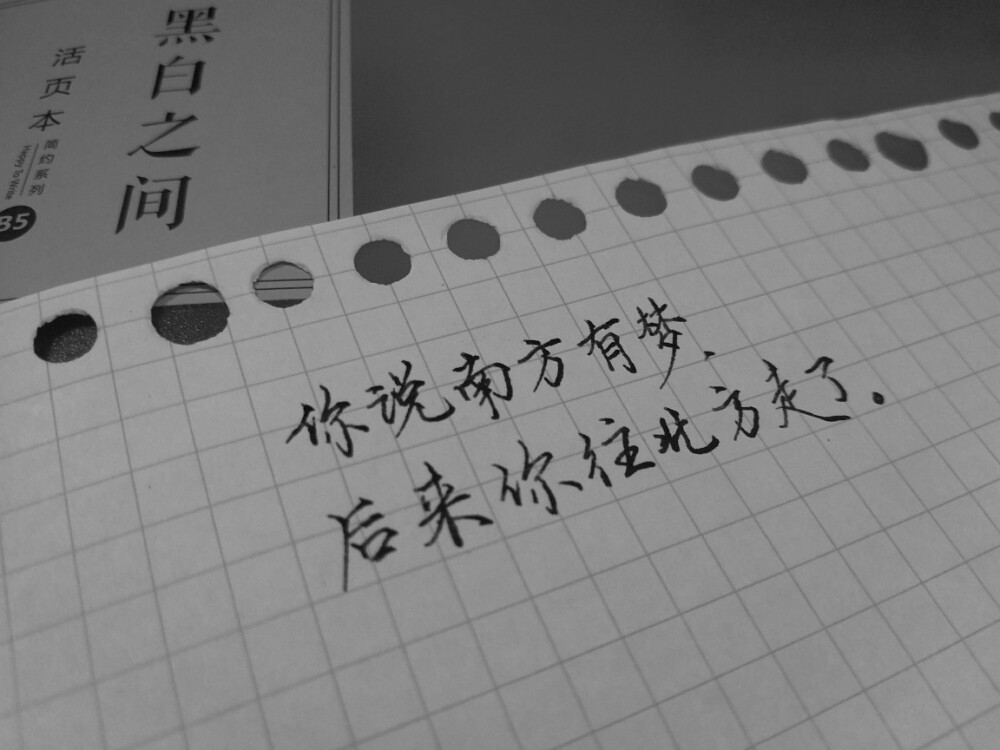 黑白之间
活页本
简约系列
Happy To Write
B5
你说南方有梦.
后来你往北方走了.